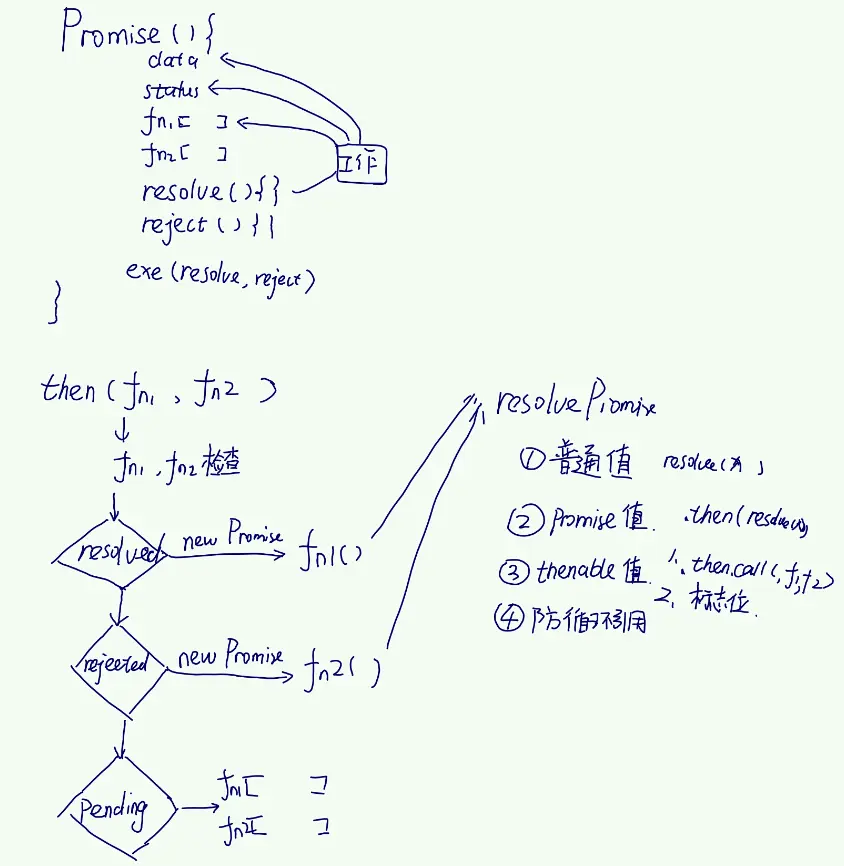 Promise(){
data
status
fn1[ ]
fn2[ ]
工作
resolve(){}
reject(){}
exe(resolve,reject)
}
then(fn1、fn2)
fn1、fn2检查
resolved
new Promise
fn1()
rejected
new Promise
fn2()
pending
fn1[ ]
fn2[ ]
resolvePromise
①普通值 resolve(x)
②Promise值. .then(resolve
③thenable值. 1、.then.call(,f1,f2)
2、标志位.
④防循环引用